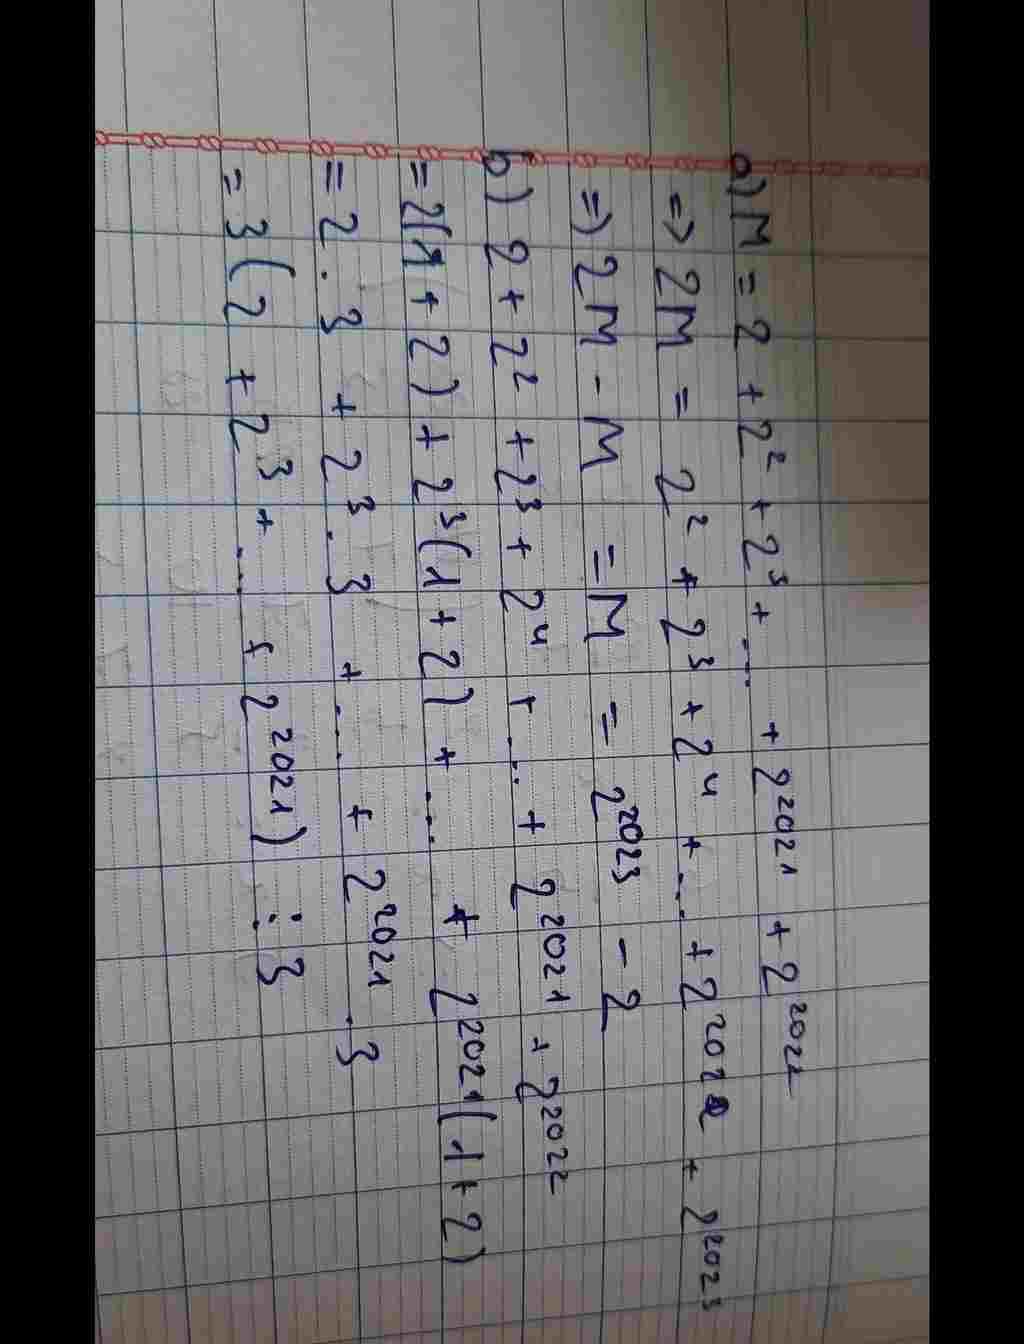 a) M = 2 + 2² + 2³ + ... + 2²⁰²¹ + 2²⁰²²
=> 2M = 2² + 2³ + 2⁴ + ... + 2²⁰²² + 2²⁰²³
=> 2M - M = M = 2²⁰²³ - 2
b) 2 + 2² + 2³ + 2⁴ + ... + 2²⁰²¹ + 2²⁰²²
= 2(1 + 2) + 2³(1 + 2) + ... + 2²⁰²¹(1 + 2)
= 2 . 3 + 2³ . 3 + ... + 2²⁰²¹ . 3
= 3(2 + 2³ + ... + 2²⁰²¹) ⋮ 3